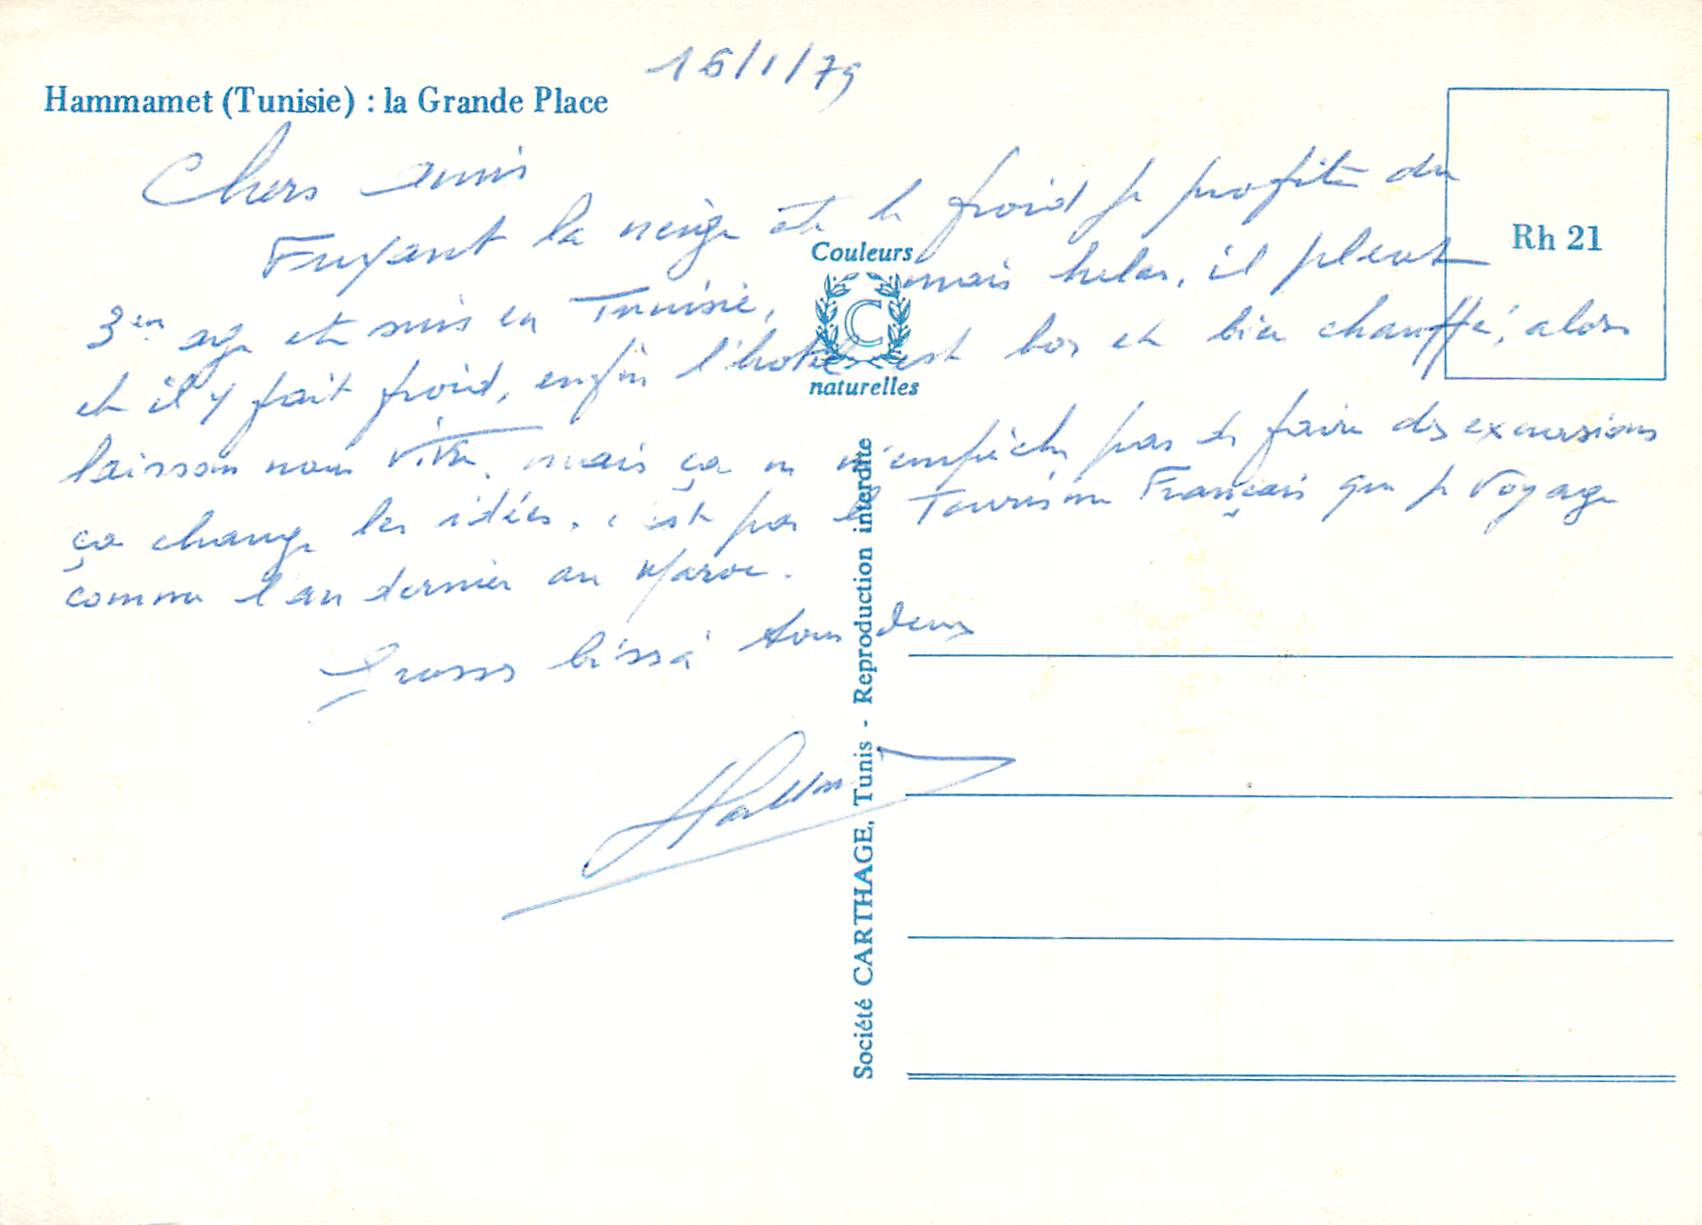 16/1/79
Hammamet (Tunisie) : la Grande Place
Rh 21
Chers amis
Fuyant la neige et le froid je profite du
3em age et suis en Tunisie, mais helas, il pleut
et il y fait froid, enfin l'hotel est bon et bien chauffé, alors
laisson nous vivre, mais ça ne m'empêche pas de faire des excursions
ça change les idées, c'est par le Tourisme Français que je voyage
comme l'an dernier au Maroc.
Grosses biss à tous deux
Couleurs
C
naturelles
Société CARTHAGE, Tunis - Reproduction interdite